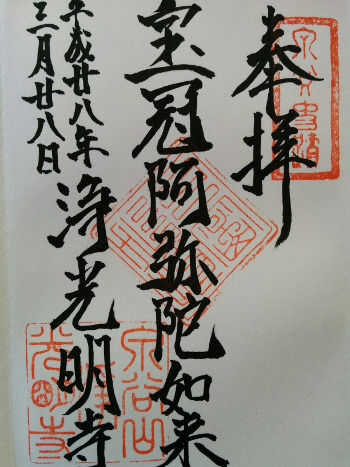 奉拝
宝冠阿弥陀如来
平成廿八年
三月廿八日
浄光明寺
泉谷山